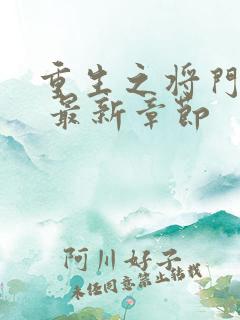 重生之将門
最新章節
阿川好子
未经同意禁止转载